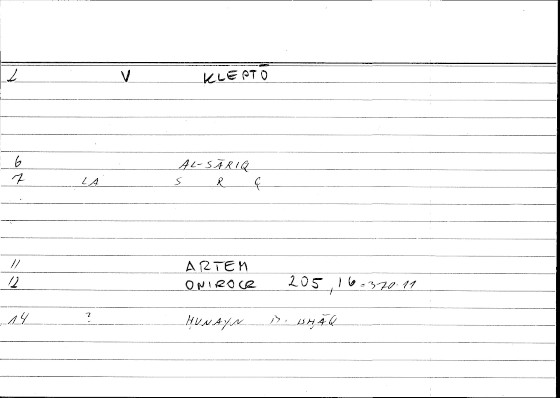 1 V KLEPTŌ
6 AL-SĀRIQ
7 LA S R Q
11 ARTEM
12 ONIROCR 205,16=370.11
14 ? ḤUNAYN B. ISḤĀQ